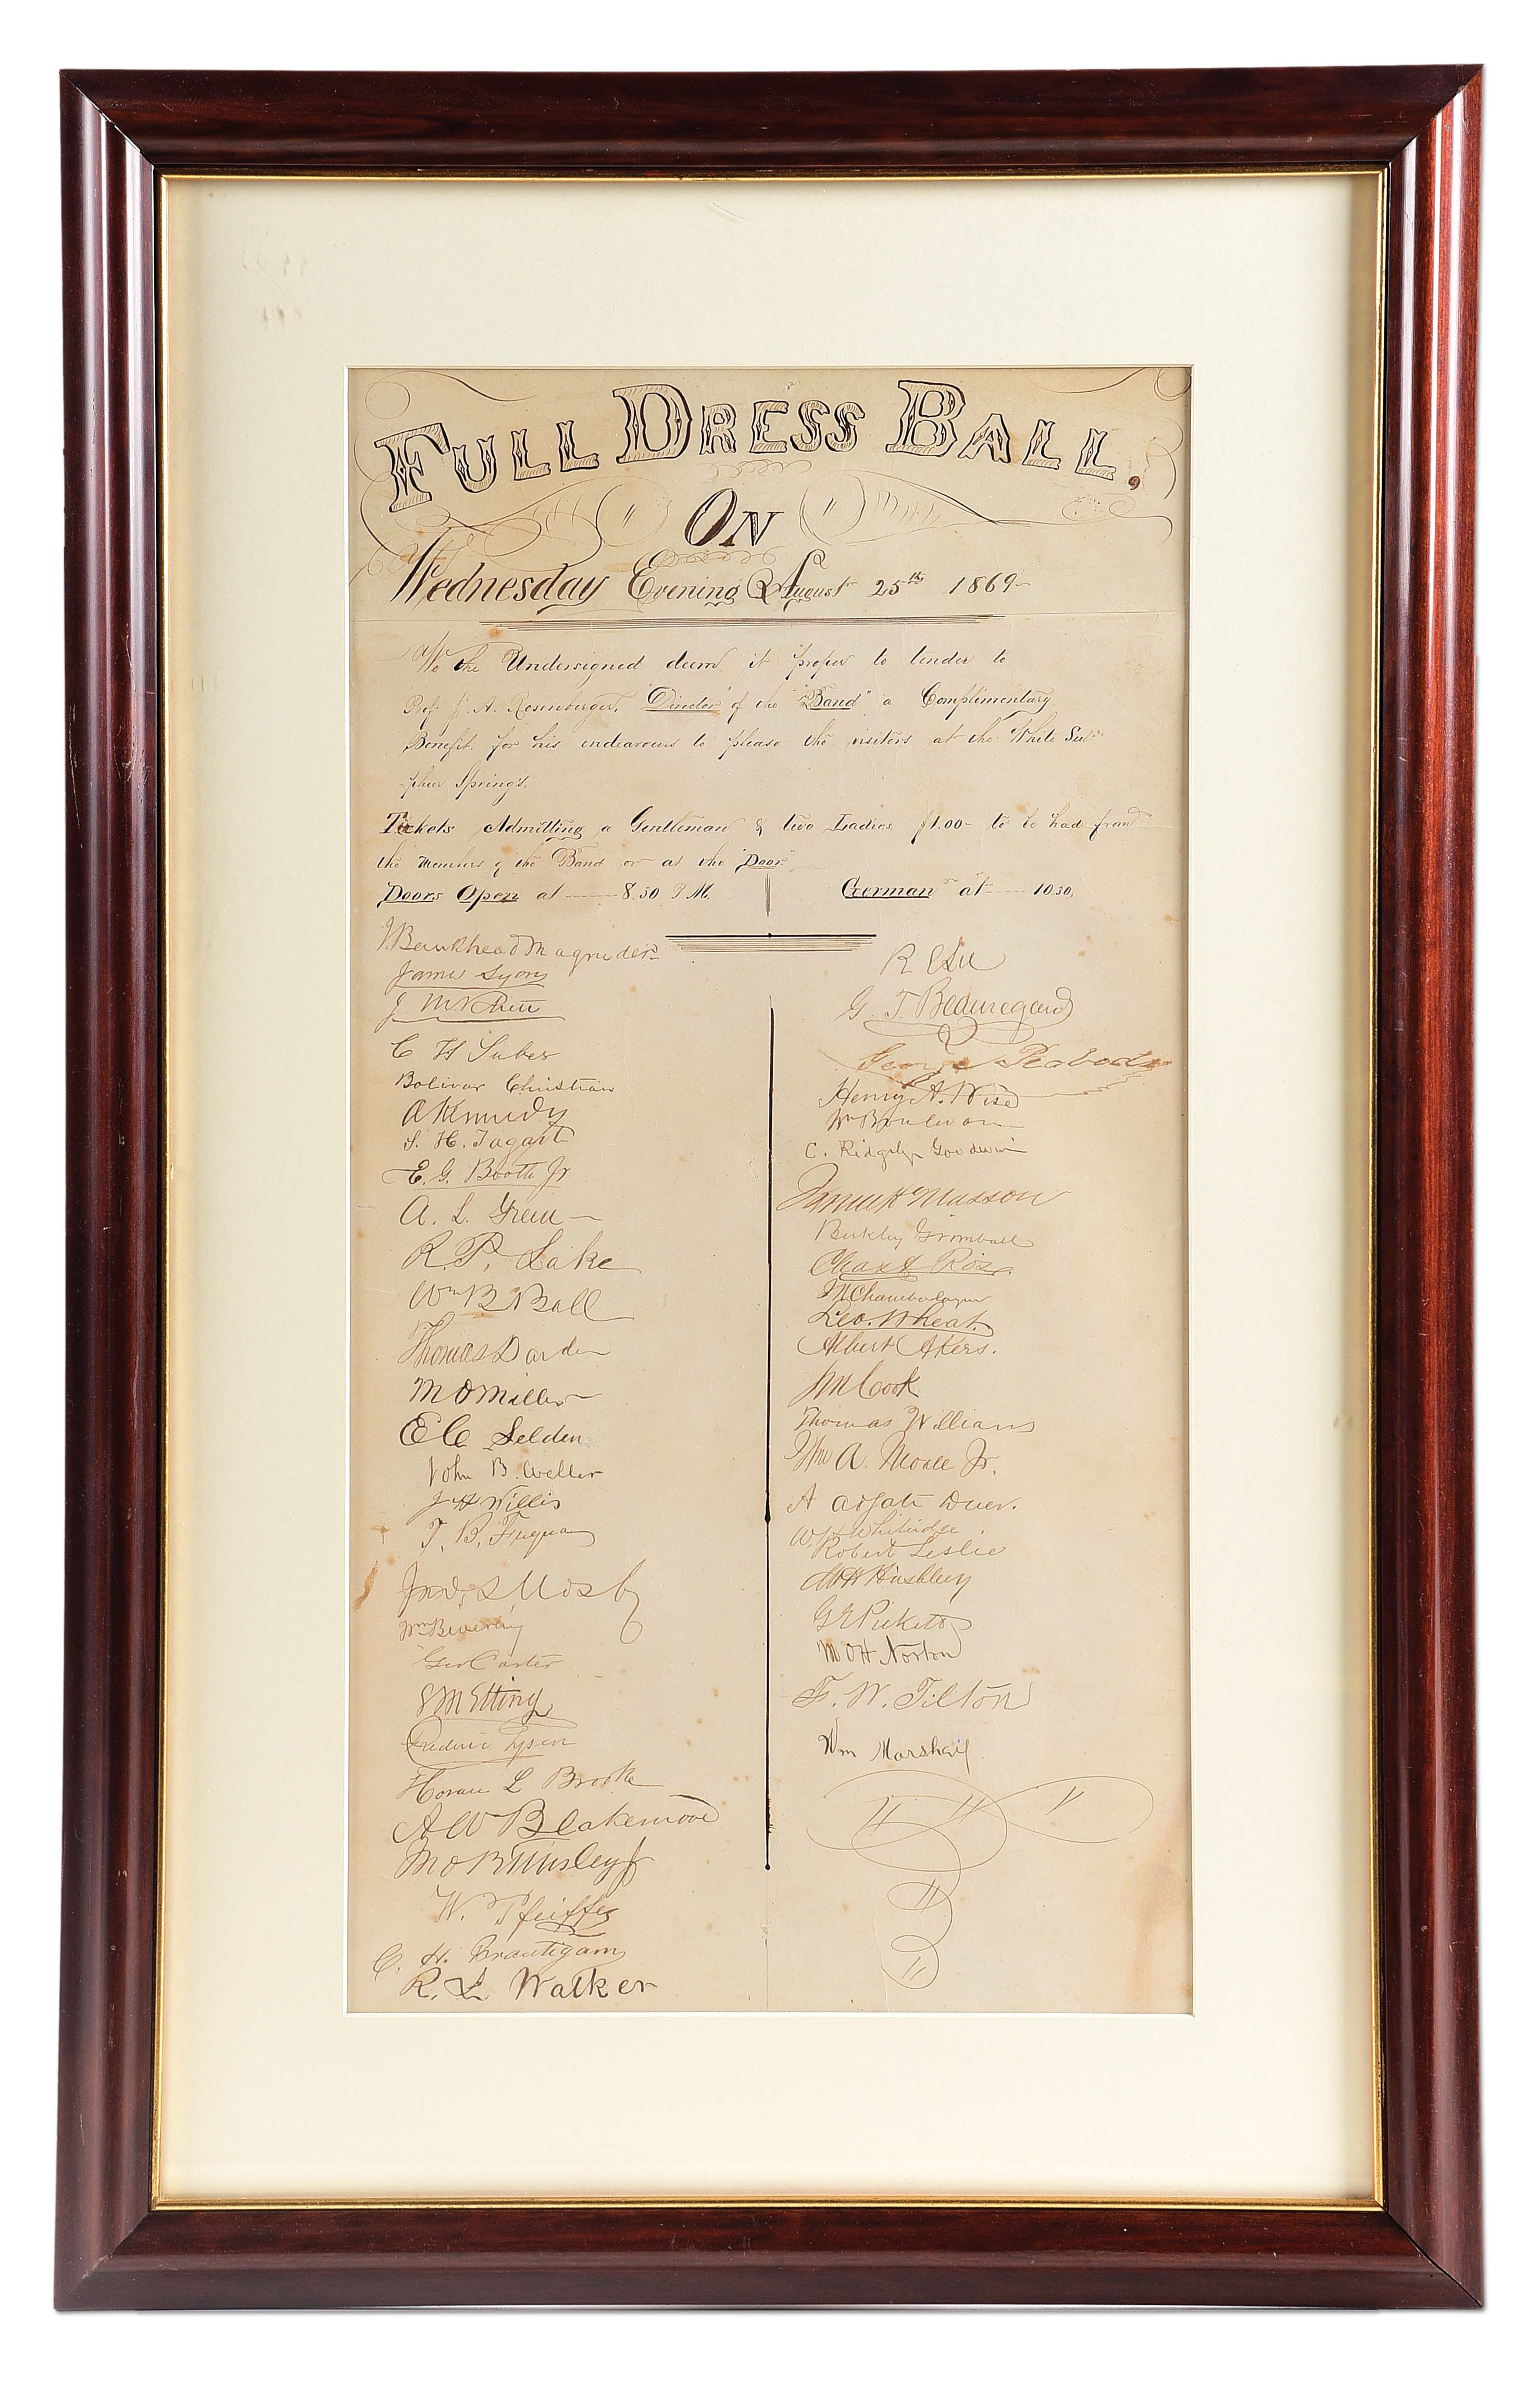 FULL DRESS BALL.
ON
Wednesday Evening August 25th 1869
We the Undersigned deem it proper to tender to
Prof. J. A. Rosenberger, "Director" of the "Band" a Complimentary
Benefit, for his endeavours to please the visitors at the White Sul-
phur Springs.
Tickets Admitting a Gentleman & two Ladies $1.00 to be had from
the Members of the Band or at the "Door"
Doors Open at 8.30 P.M.
"German" at 10.30,
J Bankhead Magruder
James Lyons
J
C H Suber
Bolivar Christian
A Kennedy
S. H. Tagart
E. G. Booth Jr
A. L. Green
R. P. Lake
Wm B Ball
Thomas Darden
M O Miller
E C Selden
John B. Weller
J H Willis
T. B. Fuqua
Jno. S Mosby
Wm Beverley
Geo Carter
E M Etting
Frederic Tyson
Horace L Brooke
A W Blakemore
Tinsley Jr
W. Pfeiffer
C. H. Brautigam
R. L. Walker
R E Lee
G. T. Beauregard
George Peabody
Henry A. Wise
Wm
C. Ridgely Goodwin
Masson
Berkley Grimball
Chas Ross
Leo. Wheat.
Albert Akers.
Jn Cook
Thomas Williams
Wm A. Moale Jr.
A Adgate Duer.
W. H. Whitridge
Robert Leslie
G E Pickett
M O H Norton
F. W. Tilton
Wm Marshall